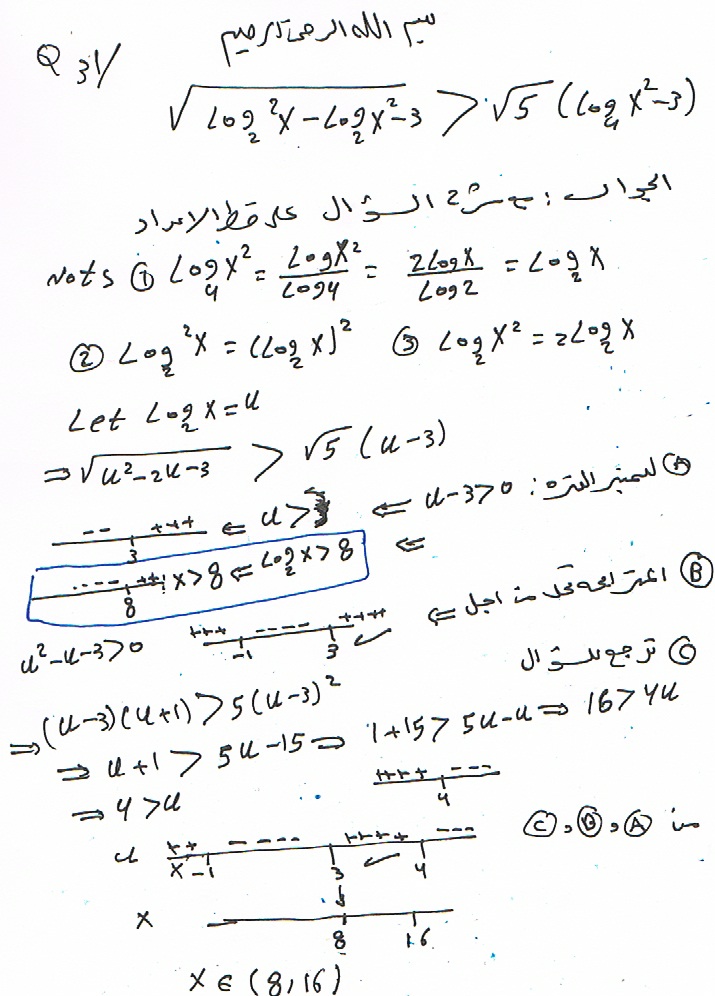 بسم الله الرحمن الرحيم
Q 31/
√(Log₂²X − Log₂X² − 3) > √5 (Log₄X² − 3)
الجواب : السؤال على خط الاعداد
Nots ① Log₄X² = LogX²/Log4 = 2LogX/Log2 = Log₂X
② Log₂²X = (Log₂X)² ③ Log₂X² = 2Log₂X
Let Log₂X = u
⇒ √(u²−2u−3) > √5 (u−3)
Ⓐ : u−3>0 ⇐ u>3 ⇐ -- +++ 3
⇐ Log₂X>8 ⇐ X>8 .... ++ 8
Ⓑ من اجل ⇐
u²−u−3>0 +++ −1 ---- 3 ++++ ✓
Ⓒ نرجع للسؤال
⇒ (u−3)(u+1) > 5(u−3)²
⇒ u+1 > 5u−15 ⇒ 1+15 > 5u−u ⇒ 16>4u
⇒ 4>u ++++ 4 ---
من Ⓐ , Ⓑ , Ⓒ
u ++ X −1 ---- 3 ++++ ✓ 4 ---
X 8 16
X ∈ (8,16)